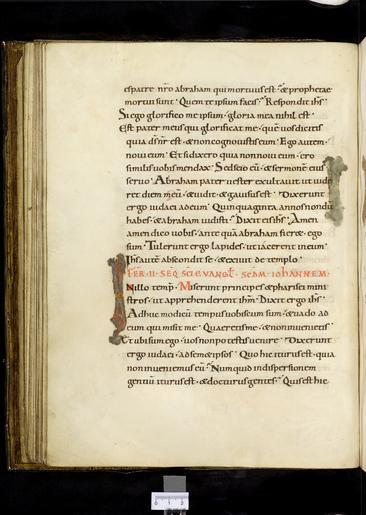 es patre nr̄o abraham qui mortuus est · & prophetae
mortui sunt · Quem te ipsum facis · Respondit ihs̄
Si ego glorifico me ipsum · gloria mea nihil est ·
Est pater meus qui glorificat me · quē vos dicitis
quia ds̄ nr̄ est · & non cognovistis eum · Ego autem
novi eum · Et si dixero quia non novi eum · ero
similis vobis mendax · Sed scio eū · & sermonē eius
servo · Abraham pater vester exultavit ut vid
ret diem meū · & vidit · & gavisus est · Dixerunt
ergo iudaei ad eum · Quinquaginta annos nondū
habes · & abraham vidisti · Dixit eis ihs̄ · Amen
amen dico vobis · ante quā abraham fieret · ego
sum · Tulerunt ergo lapides · ut iacerent in eum ·
Ihs̄ autē abscondit se · & exivit de templo
FER · II · SEQ SCI EVANGL · SCDM · IOHANNEM ·
In illo temp̄ · Miserunt principes & pharisei mini
stros · ut apprehenderent ihm̄ · Dixit ergo ihs̄
Adhuc modicū tempus vobiscum sum · & vado ad
eum qui misit me · Quaeretis me · & non invenietis
Et ubi sum ego · vos non potestis venire · Dixerunt
ergo iudaei · ad sem& ipsos · Quo hic iturus est · quia
non inveniemus eū · Numquid in dispersionem
gentiū iturus est · & docturus gentes · Quis est hic